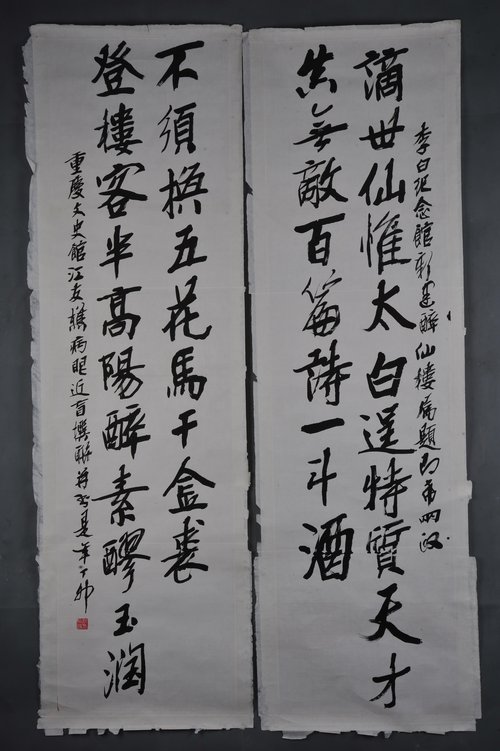 李白纪念館新建醉仙樓屬題即希哂政
謫世仙惟太白逞特質天才
真無敵百篇詩一斗酒
登樓客半高陽醉素醪玉潤
不須換五花馬千金裘
重慶文史館江友樵病眼近盲撰聯并書是年丁卯